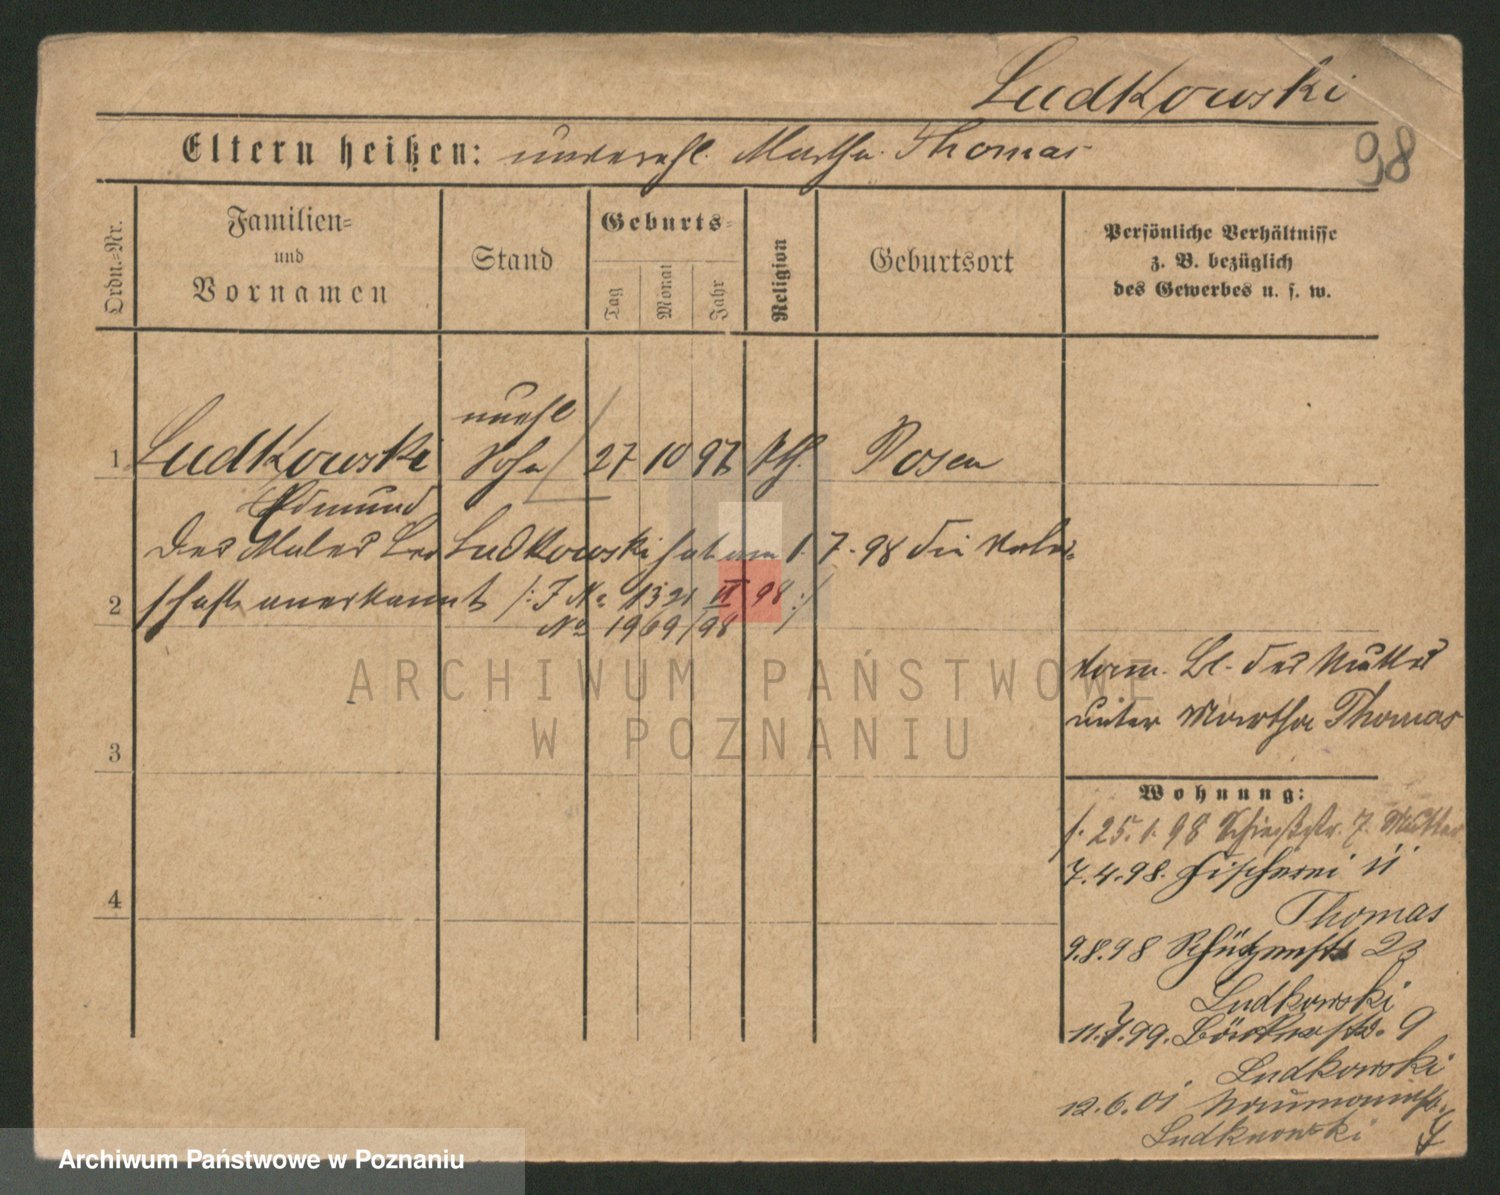 Ludkowski
Eltern heißen: unverehl. Martha Thomas
98
Ordn.-Nr.
Familien-
und
Vornamen
Stand
Geburts-
Tag
Monat
Jahr
Religion
Geburtsort
Persönliche Verhältnisse
z. B. bezüglich
des Gewerbes u. s. w.
unehl
1 Ludkowski Sohn 27 10 97 kth. Posen
Edmund
Der Maler Leo Ludkowski hat am 1. 7. 98 die Vater-
2 schaft anerkannt /: J No 1321 VI 98 :/
No 1969/98
ARCHIWUM PAŃSTWOWE
W POZNANIU
Kom. Bl. der Mutter
unter Martha Thomas
3
Wohnung:
f. 25.1.98 Schießstr. 7. Mutter
7.4.98. Fischerei 11
Thomas
4
9.8.98 Schützenstr 23
Ludkowski
11.7.99. Bäckerstr. 9
Ludkowski
12.6.01 Naumannstr.
Ludknowski
Archiwum Państwowe w Poznaniu